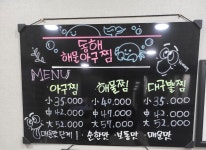 송해
해물아구찜
MENU
아구찜 해물찜 대구뽈찜
小 35.000 小 40.000 小 35.000
中 42.000 中 47.000 中 42.000
大 52.000 大 57.000 大 52.000
매운맛 단계! 순한맛 보통맛 매운맛